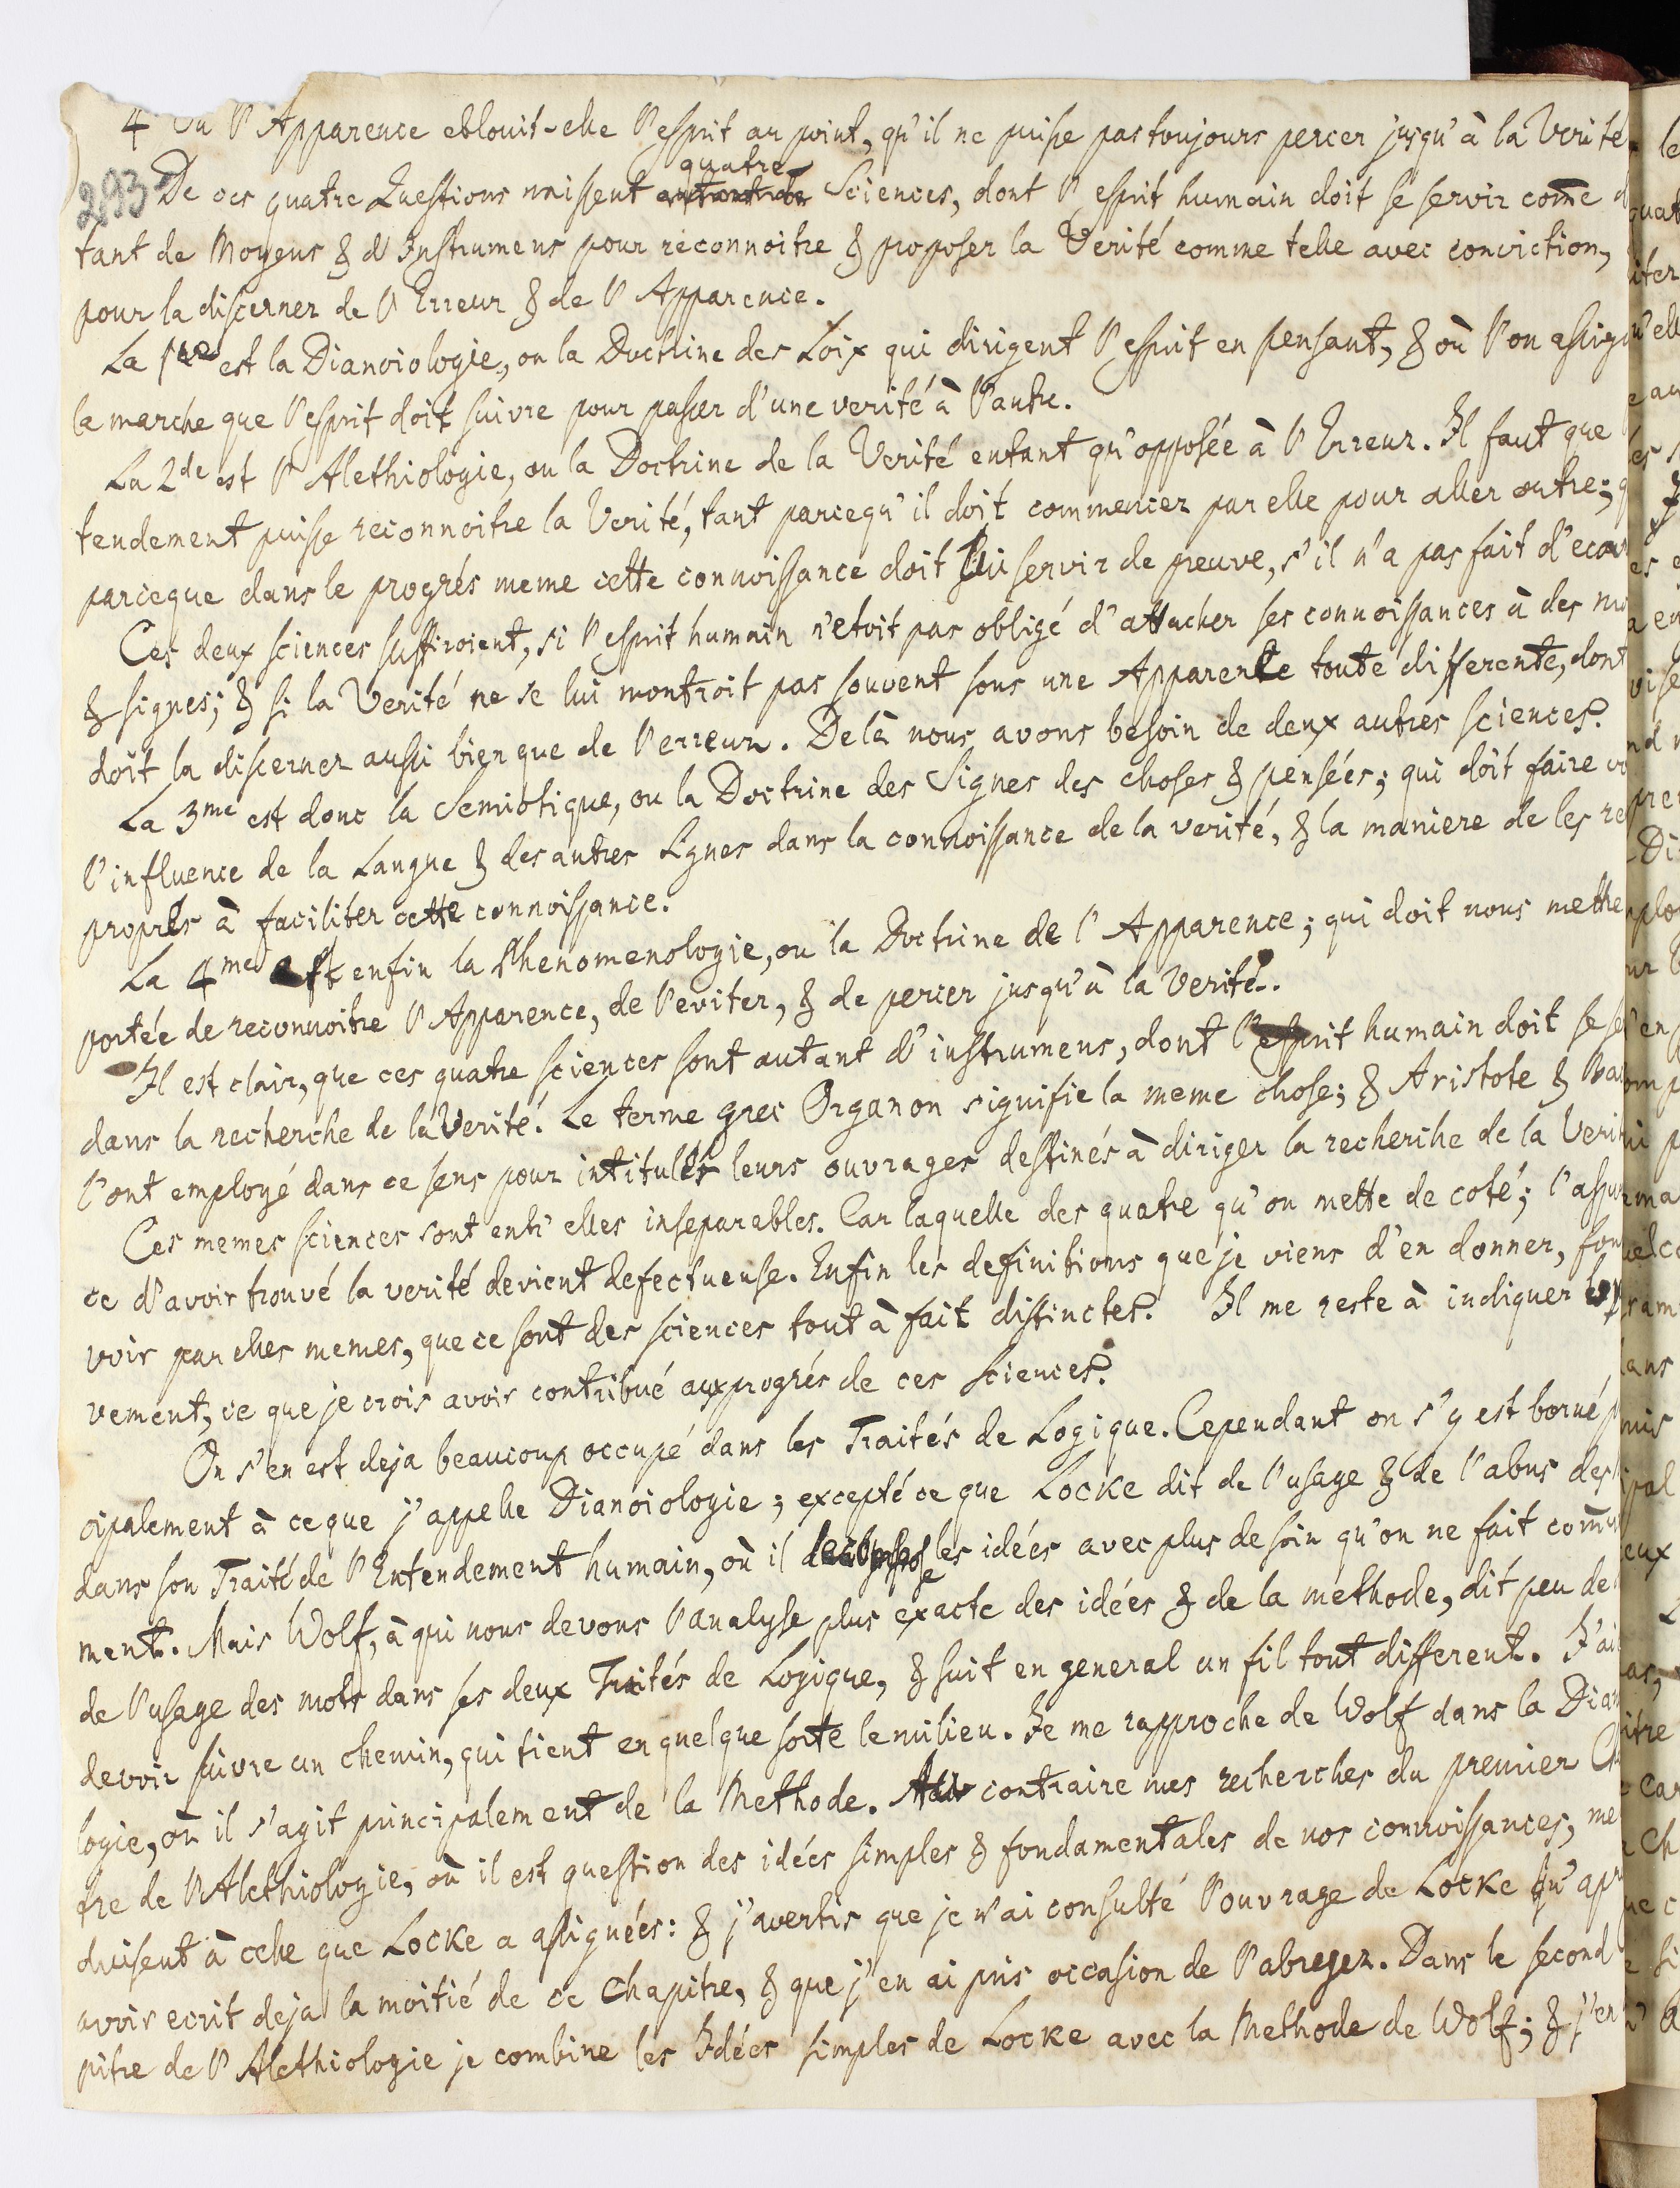 4 Ou l'Apparence eblouit-elle l'esprit au point, qu'il ne puisse pas toujours percer jusqu'à la Verité
293
quatre
De ces quatre Questions naissent autant de Sciences, dont l'esprit humain doit se servir com̄e d
tant de Moyens & d'Instrumens pour reconnoitre & proposer la Verité comme telle avec conviction,
pour la discerner de l'Erreur & de l'Apparence.
La 1re est la Dianoiologie, ou la Doctrine des Loix qui dirigent l'esprit en pensant, & où l'on assig
la marche que l'esprit doit suivre pour passer d'une verité à l'autre.
La 2de est l'Alethiologie, ou la Doctrine de la Verité entant qu'opposée à l'Erreur. Il faut que
tendement puisse reconnoitre la Verité, tant parcequ'il doit commencer par elle pour aller outre; q
parceque dans le progrés meme cette connoissance doit lui servir de preuve, s'il n'a pas fait d'ecar
Ces deux sciences suffiroient, si l'esprit humain n'etoit pas obligé d'attacher ses connoissances à des mo
& signes; & si la Verité ne se lui montroit pas souvent sous une Apparence toute differente, dont
doit la discerner aussi bien que de l'erreur. Delà nous avons besoin de deux autres sciences.
La 3me est donc la Semiotique, ou la Doctrine des Signes des choses & pensées; qui doit faire vo
l'influence de la Langue & des autres Signes dans la connoissance de la verité, & la maniere de les re
propres à faciliter cette connoissance.
La 4me est enfin la Phenomenologie, ou la Doctrine de l'Apparence; qui doit nous mettre
portée de reconnoitre l'Apparence, de l'eviter, & de percer jusqu'à la Verité.
Il est clair, que ces quatre sciences sont autant d'instrumens, dont l'esprit humain doit se se
dans la recherche de la Verité. Le terme grec Organon signifie la meme chose; & Aristote & Ba
l'ont employé dans ce sens pour intituler leurs ouvrages destinés à diriger la recherche de la Veri
Ces memes sciences sont entr'elles inseparables. Car laquelle des quatre qu'on mette de coté; l'assu
ce d'avoir trouvé la verité devient defectueuse. Enfin les definitions que je viens d'en donner, fon
voir par elles memes, que ce sont des sciences tout à fait distinctes. Il me reste à indiquer
vement, ce que je crois avoir contribué aux progrés de ces Sciences.
On s'en est deja beaucoup occupé dans les Traités de Logique. Cependant on s'y est borné p
cipalement à ce que j'appelle Dianoiologie; excepté ce que Locke dit de l'usage & de l'abus des
dans son Traité de l'Entendement humain, où il decompose les idées avec plus de soin qu'on ne fait com̄u
ment. Mais Wolf, à qui nous devons l'analyse plus exacte des idées & de la methode, dit peu de
de l'usage des mots dans ses deux Traités de Logique, & suit en general un fil tout different. J'ai
devoir suivre un chemin, qui tient en quelque sorte le milieu. Je me rapproche de Wolf dans la Dian
logie, où il s'agit principalement de la Methode. Au contraire mes recherches du premier Ch
tre de l'Alethiologie, où il est question des idées simples & fondamentales de nos connoissances, me
duisent à celle que Locke a assignées: & j'avertis que je n'ai consulté l'ouvrage de Locke qu'apr
avoir ecrit deja la moitié de ce Chapitre, & que j'en ai pris occasion de l'abreger. Dans le second
pitre de l'Alethiologie je combine les Idées simples de Locke avec la Methode de Wolf; & j'en